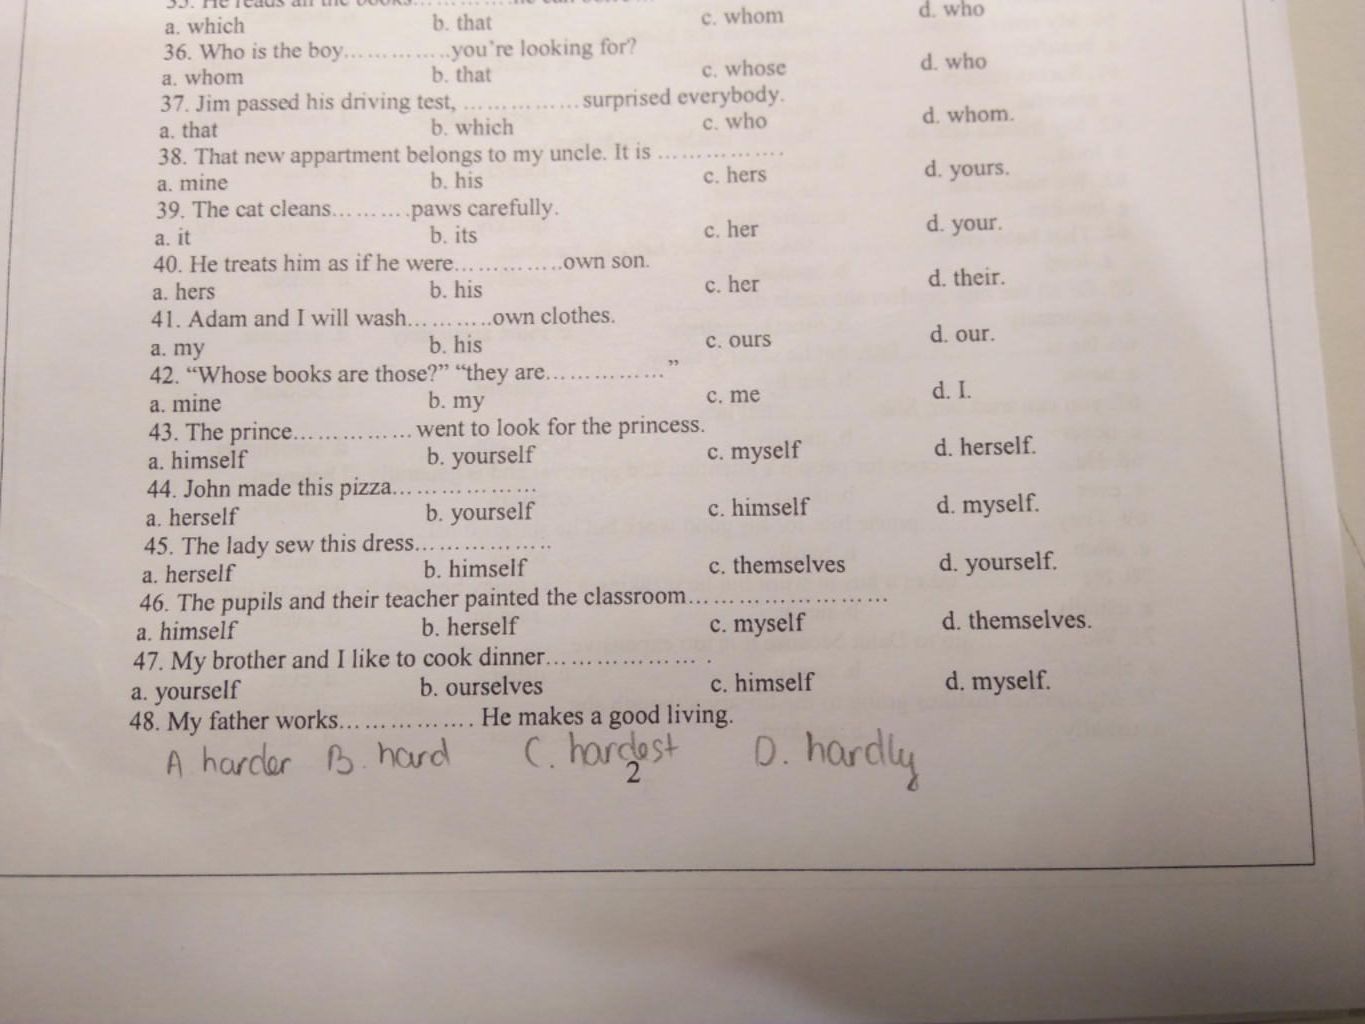 35. He reads all the books… … … …he can
a. which b. that c. whom d. who
36. Who is the boy… … … …..you're looking for?
a. whom b. that c. whose d. who
37. Jim passed his driving test, … … … … …surprised everybody.
a. that b. which c. who d. whom.
38. That new appartment belongs to my uncle. It is … … … … …
a. mine b. his c. hers d. yours.
39. The cat cleans… … ….paws carefully.
a. it b. its c. her d. your.
40. He treats him as if he were… … … …..own son.
a. hers b. his c. her d. their.
41. Adam and I will wash… … …..own clothes.
a. my b. his c. ours d. our.
42. “Whose books are those?” “they are… … … … …”
a. mine b. my c. me d. I.
43. The prince… … … … … went to look for the princess.
a. himself b. yourself c. myself d. herself.
44. John made this pizza… … … … … …
a. herself b. yourself c. himself d. myself.
45. The lady sew this dress… … … … … …
a. herself b. himself c. themselves d. yourself.
46. The pupils and their teacher painted the classroom… … … … … … … …
a. himself b. herself c. myself d. themselves.
47. My brother and I like to cook dinner… … … … … … .
a. yourself b. ourselves c. himself d. myself.
48. My father works… … … … …. He makes a good living.
A harder B. hard C. hardest D. hardly
2